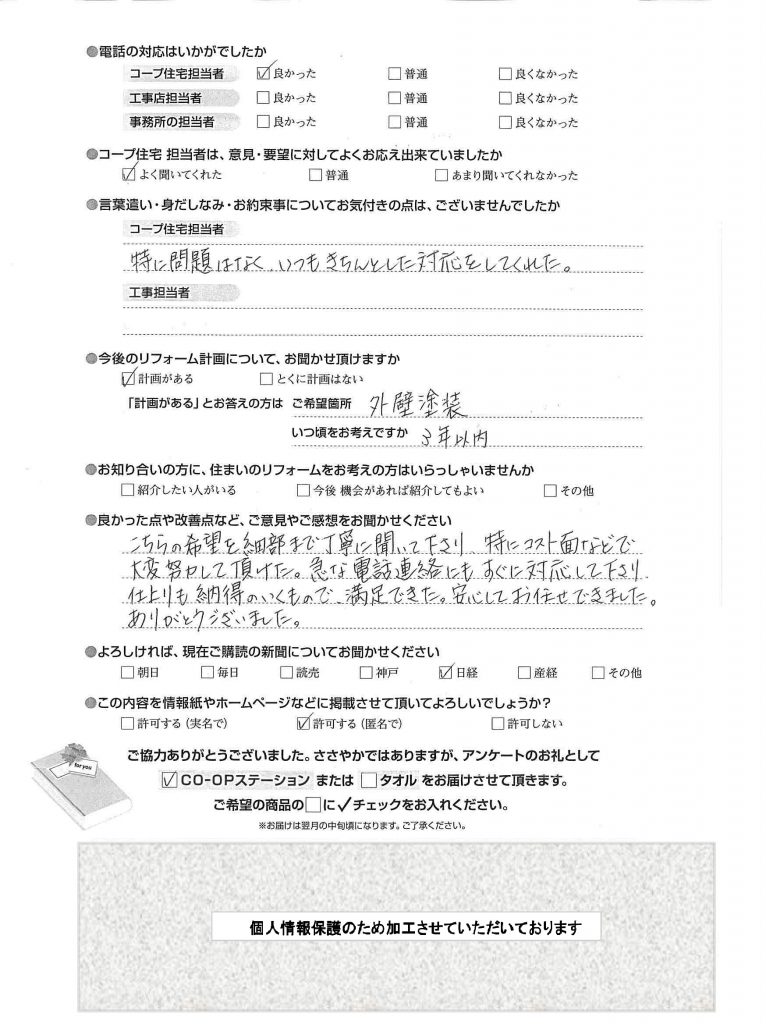 ●電話の対応はいかがでしたか
コープ住宅担当者 ☑良かった □普通 □良くなかった
工事店担当者 □良かった □普通 □良くなかった
事務所の担当者 □良かった □普通 □良くなかった
●コープ住宅 担当者は、意見・要望に対してよくお応え出来ていましたか
☑よく聞いてくれた □普通 □あまり聞いてくれなかった
●言葉遣い・身だしなみ・お約束事についてお気付きの点は、ございませんでしたか
コープ住宅担当者
特に問題はなく、いつもきちんとした対応をしてくれた。
工事担当者
●今後のリフォーム計画について、お聞かせ頂けますか
☑計画がある □とくに計画はない
「計画がある」とお答えの方は ご希望箇所 外壁塗装
いつ頃をお考えですか 3年以内
●お知り合いの方に、住まいのリフォームをお考えの方はいらっしゃいませんか
□紹介したい人がいる □今後 機会があれば紹介してもよい □その他
●良かった点や改善点など、ご意見やご感想をお聞かせください
こちらの希望を細部まで丁寧に聞いて下さり、特にコスト面などで
大変努力して頂けた。急な電話連絡にもすぐに対応して下さり
仕上りも納得のいくもので、満足できた。安心してお任せできました。
ありがとうございました。
●よろしければ、現在ご購読の新聞についてお聞かせください
□朝日 □毎日 □読売 □神戸 ☑日経 □産経 □その他
●この内容を情報紙やホームページなどに掲載させて頂いてよろしいでしょうか?
□許可する(実名で) ☑許可する(匿名で) □許可しない
for you
ご協力ありがとうございました。ささやかではありますが、アンケートのお礼として
☑CO-OPステーション または □タオル をお届けさせて頂きます。
ご希望の商品の□に✓チェックをお入れください。
※お届けは翌月の中旬頃になります。ご了承ください。
個人情報保護のため加工させていただいております